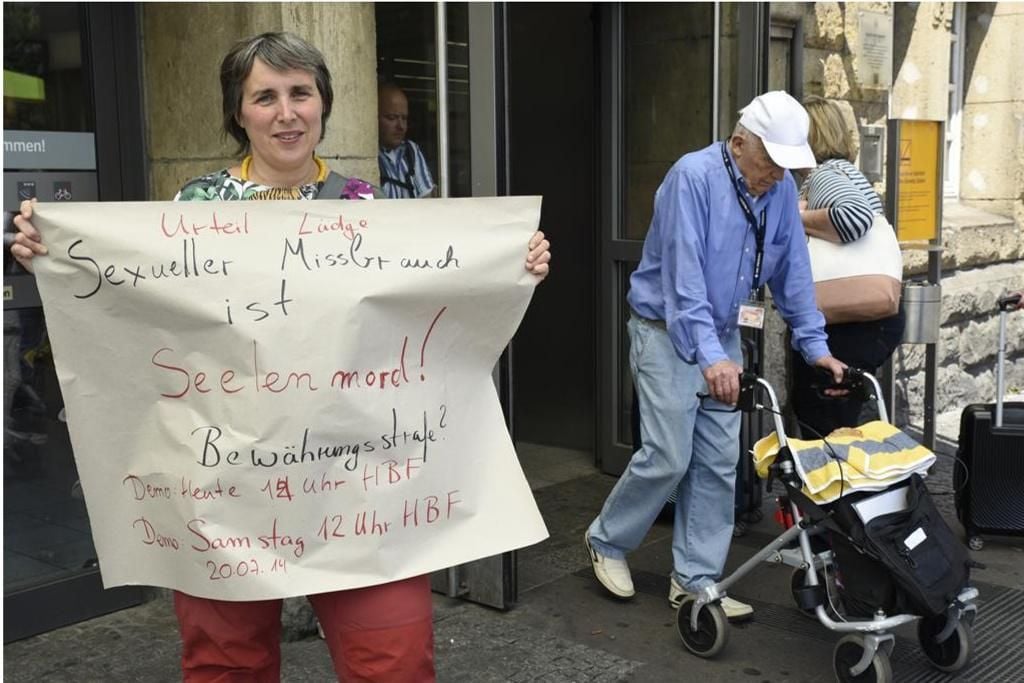 mmen!
Urteil Lüdge
Sexueller Missbrauch
ist
Seelenmord!
Bewährungsstrafe?
Demo: Heute 14 Uhr HBF
Demo: Samstag 12 Uhr HBF
20.07.19